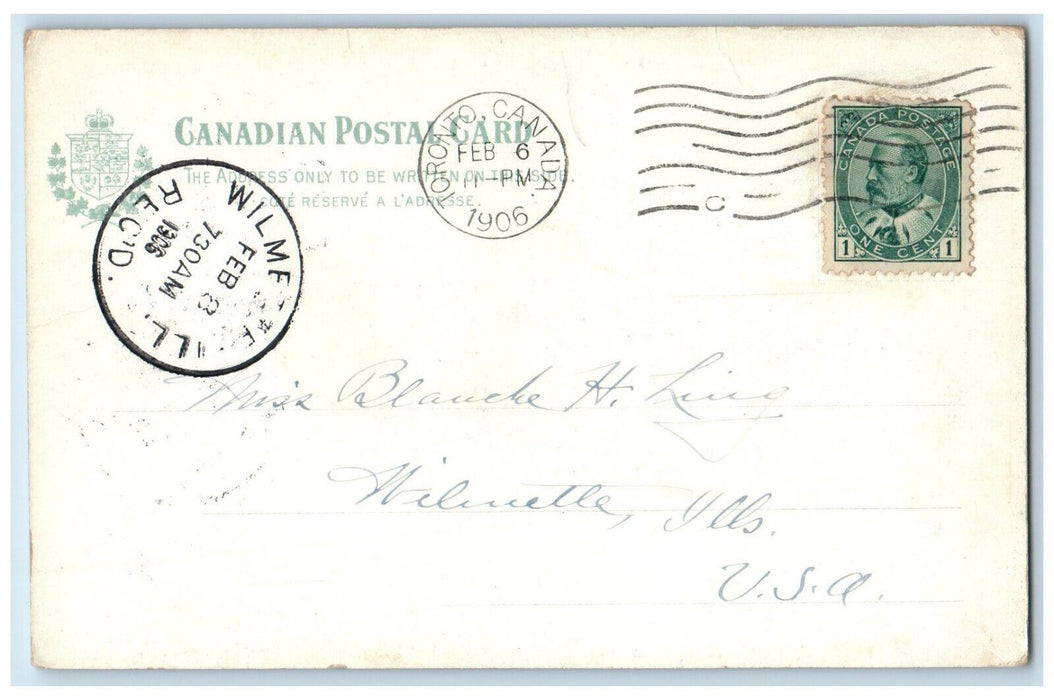 CANADIAN POSTAL CARD
THE ADDRESS ONLY TO BE WRITTEN ON THIS SIDE.
CÔTÉ RÉSERVÉ A L'ADRESSE.
TORONTO, CANADA
FEB 6
11-PM
1906
C
CANADA POSTAGE
1 ONE CENT 1
WILMETTE ILL.
FEB 8
730AM
1906
REC'D.
Miss Blanche H. Ling
Wilmette, Ills.
U.S.A.